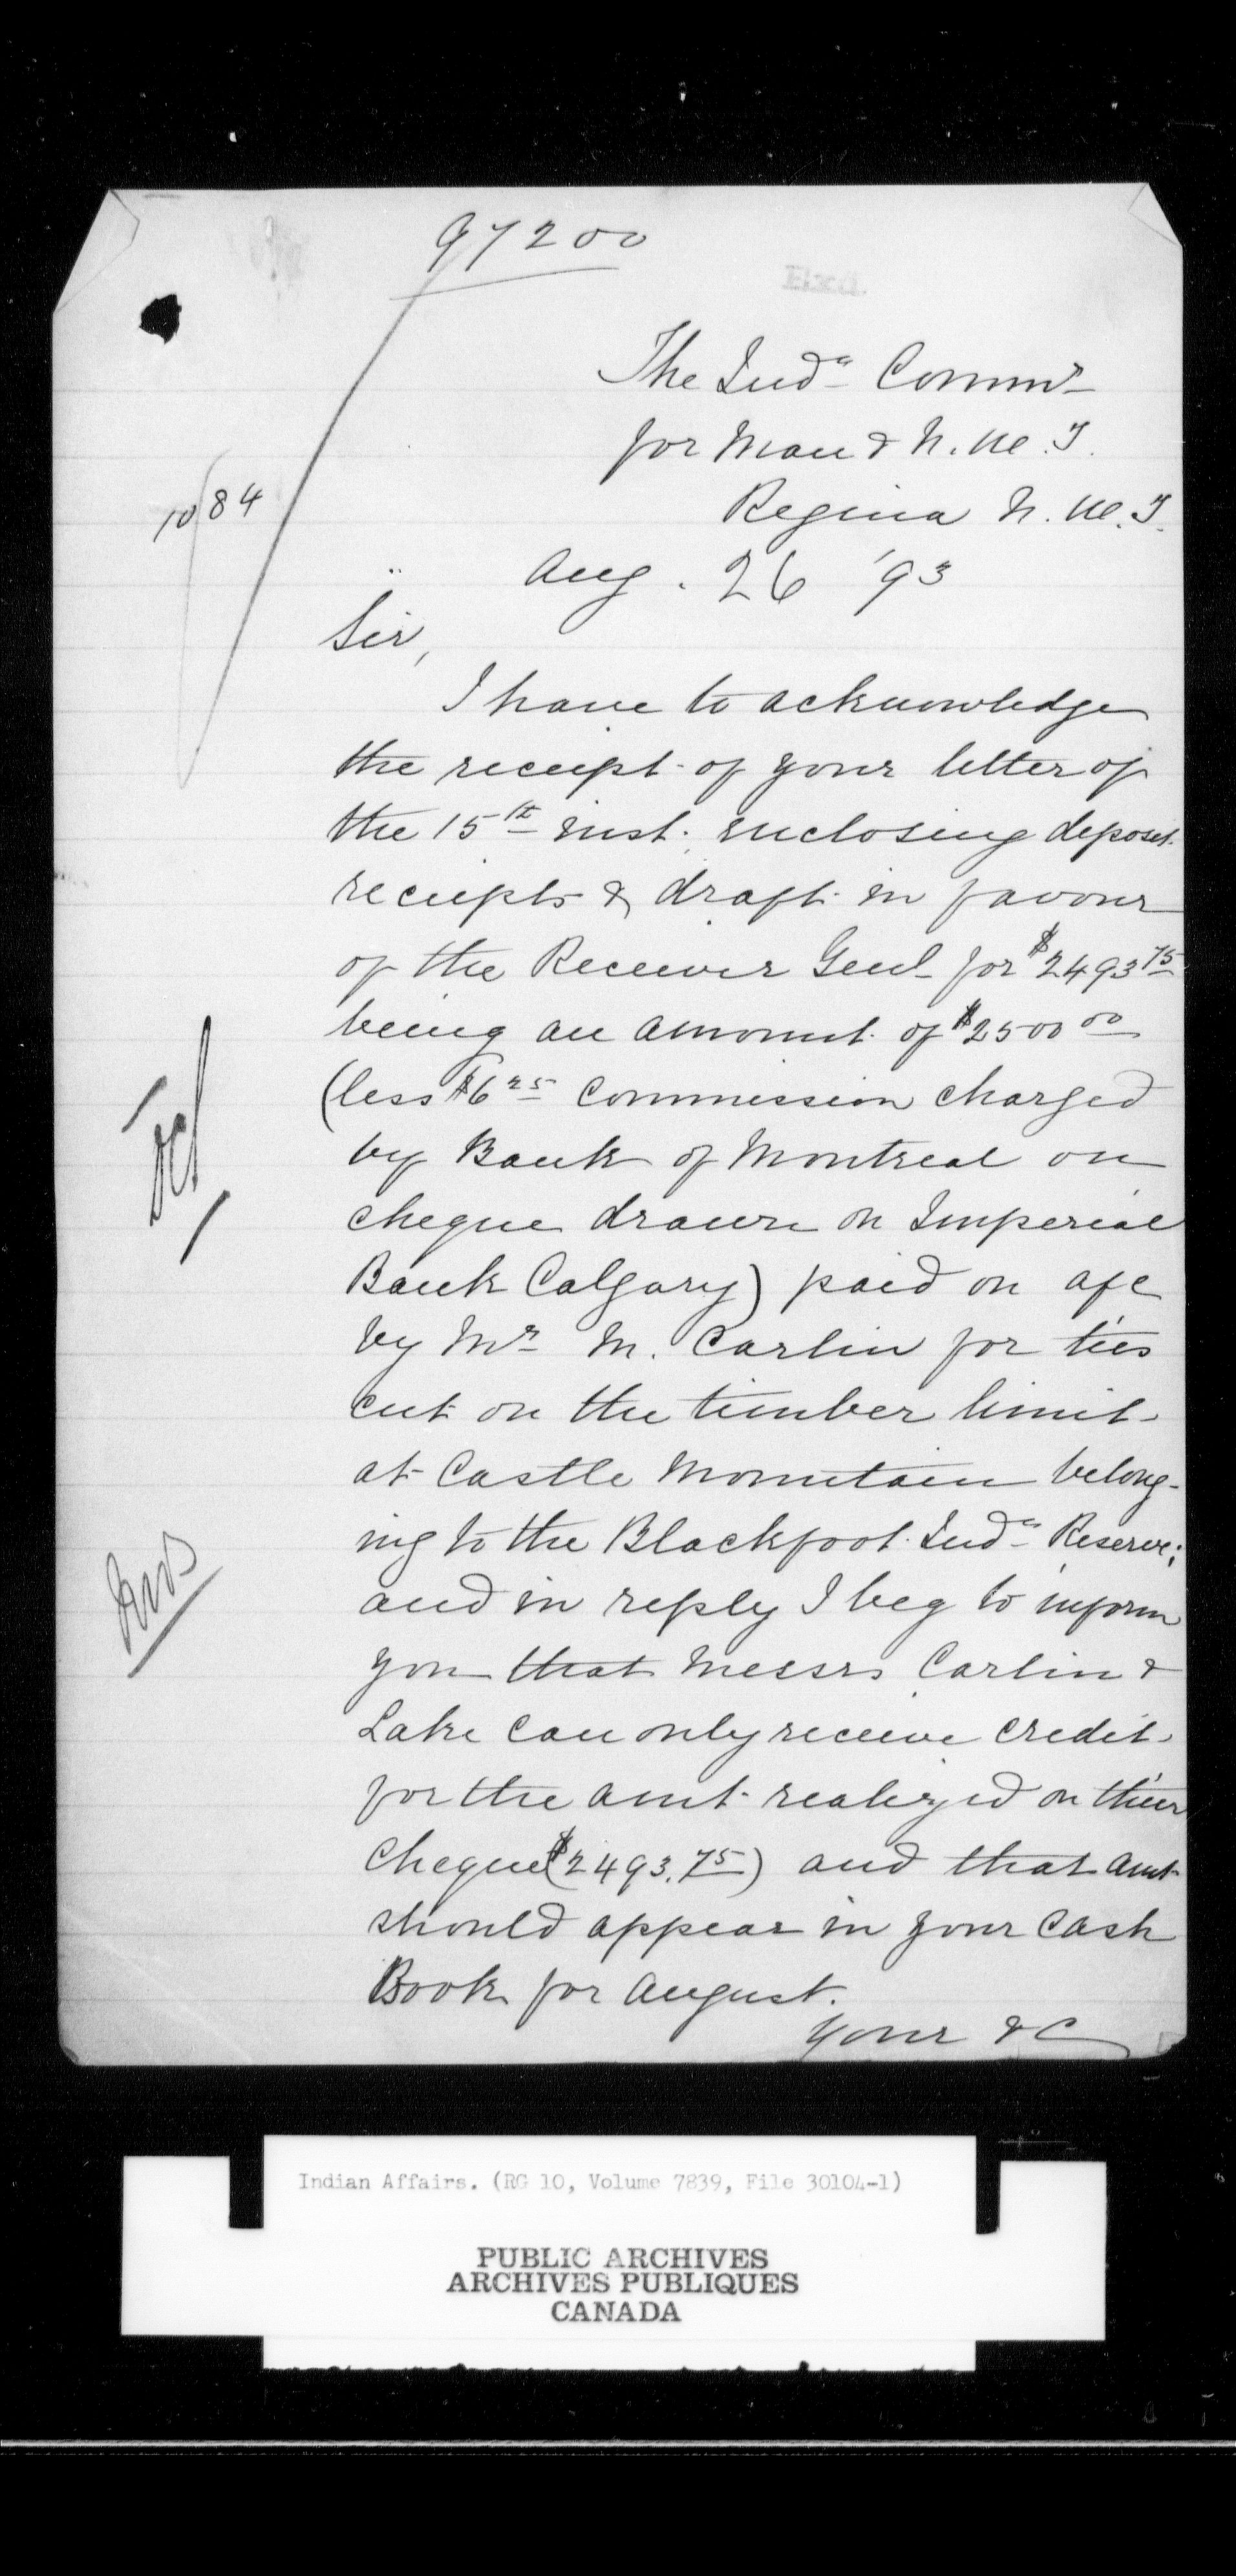 97200
The Ind.n Commr
for Man & N.W.T.
1084
Regina N.W.T.
Aug. 26 '93
Sir,
I have to acknowledge
the receipt of your letter of
the 15th inst. inclosing deposit
receipts & draft in favour
of the Receiver Genl for $2493 75
being an amount of $2500 00
(less $6 25 commission charged
by Bank of Montreal on
cheque drawn on Imperial
Bank Calgary) paid on a/c
by Mr M. Carlin for ties
cut on the timber limit
at Castle Mountain belong-
ing to the Blackfoot Ind.n Reserve;
and in reply I beg to inform
you that Messrs Carlin &
Lake can only receive credit
for the amt realized on their
cheque ($2493.75) and that amt
should appear in your Cash
Book for August.
Your &c
Indian Affairs. (RG 10, Volume 7839, File 30104-1)
PUBLIC ARCHIVES
ARCHIVES PUBLIQUES
CANADA